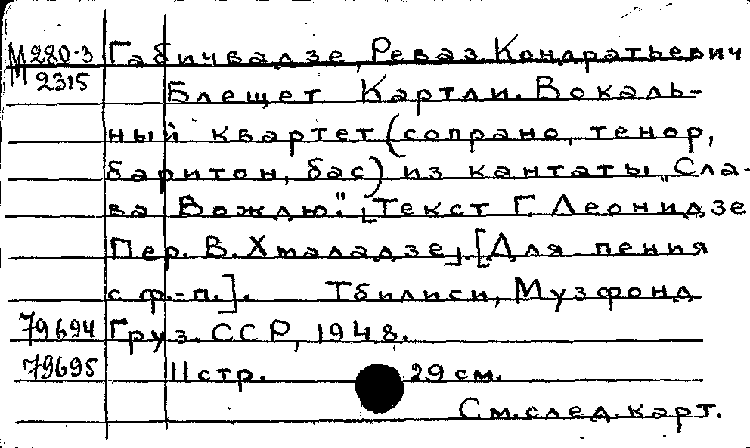 М 280-3 Габичвадзе, Реваз Кондратьевич
М 2315
Блещет Картли. Вокаль-
ный квартет (сопрано, тенор,
баритон, бас) из кантаты „Сла-
ва Вождю". [Текст Г. Леонидзе
Пер. В. Хмаладзе]. [Для пения
с ф.-п.]. Тбилиси, Музфонд
79694 Груз. ССР, 1948.
79695 11 стр. 29 см.
См. след. карт.